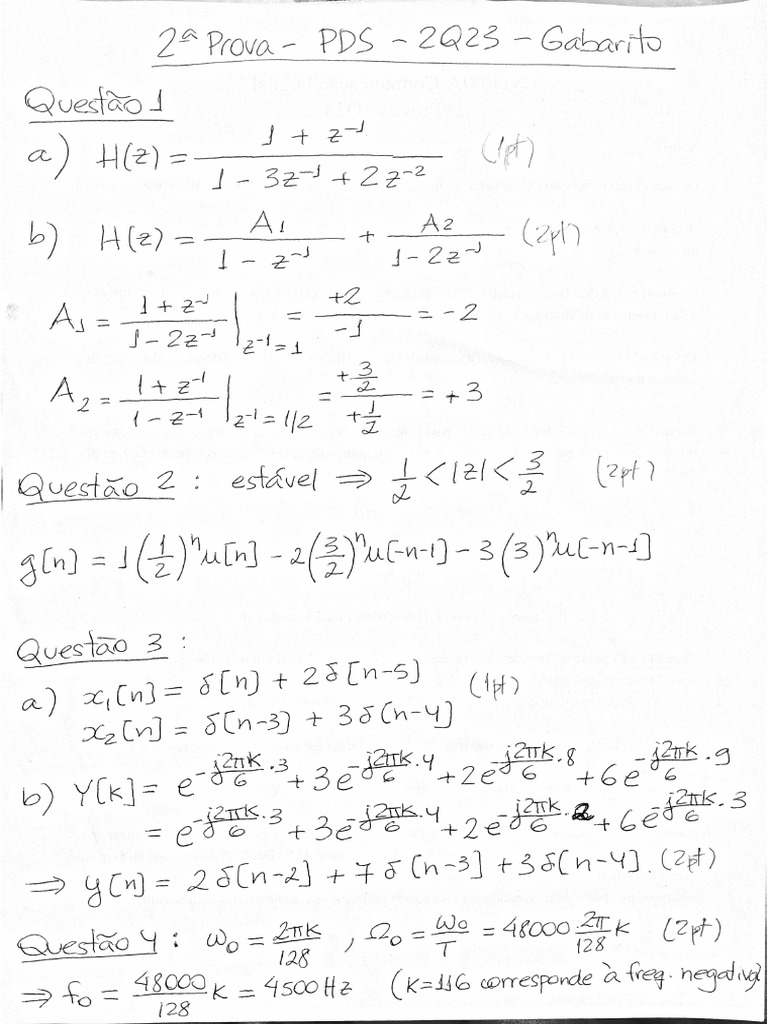 2ª Prova - PDS - 2Q23 - Gabarito
Questão 1
a) H(z) = (1 + z⁻¹) / (1 - 3z⁻¹ + 2z⁻²) (1pt)
b) H(z) = A₁ / (1 - z⁻¹) + A₂ / (1 - 2z⁻¹) (2pt)
A₁ = (1 + z⁻¹) / (1 - 2z⁻¹) |z⁻¹=1 = +2 / -1 = -2
A₂ = (1 + z⁻¹) / (1 - z⁻¹) |z⁻¹=1/2 = (+3/2) / (+1/2) = +3
Questão 2 : estável ⇒ 1/2 < |z| < 3/2 (2pt)
g[n] = 1(1/2)ⁿu[n] - 2(3/2)ⁿu[-n-1] - 3(3)ⁿu[-n-1]
Questão 3 :
a) x₁[n] = δ[n] + 2δ[n-5] (1pt)
x₂[n] = δ[n-3] + 3δ[n-4]
b) Y[k] = e^(-j2πk/6 · 3) + 3e^(-j2πk/6 · 4) + 2e^(-j2πk/6 · 8) + 6e^(-j2πk/6 · 9)
= e^(-j2πk/6 · 3) + 3e^(-j2πk/6 · 4) + 2e^(-j2πk/6 · 2) + 6e^(-j2πk/6 · 3)
⇒ y[n] = 2δ[n-2] + 7δ[n-3] + 3δ[n-4]. (2pt)
Questão 4 : ω₀ = 2πk/128 , Ω₀ = ω₀/T = 48000 · 2π/128 k (2pt)
⇒ f₀ = 48000/128 k = 4500 Hz (k=116 corresponde à freq. negativa)